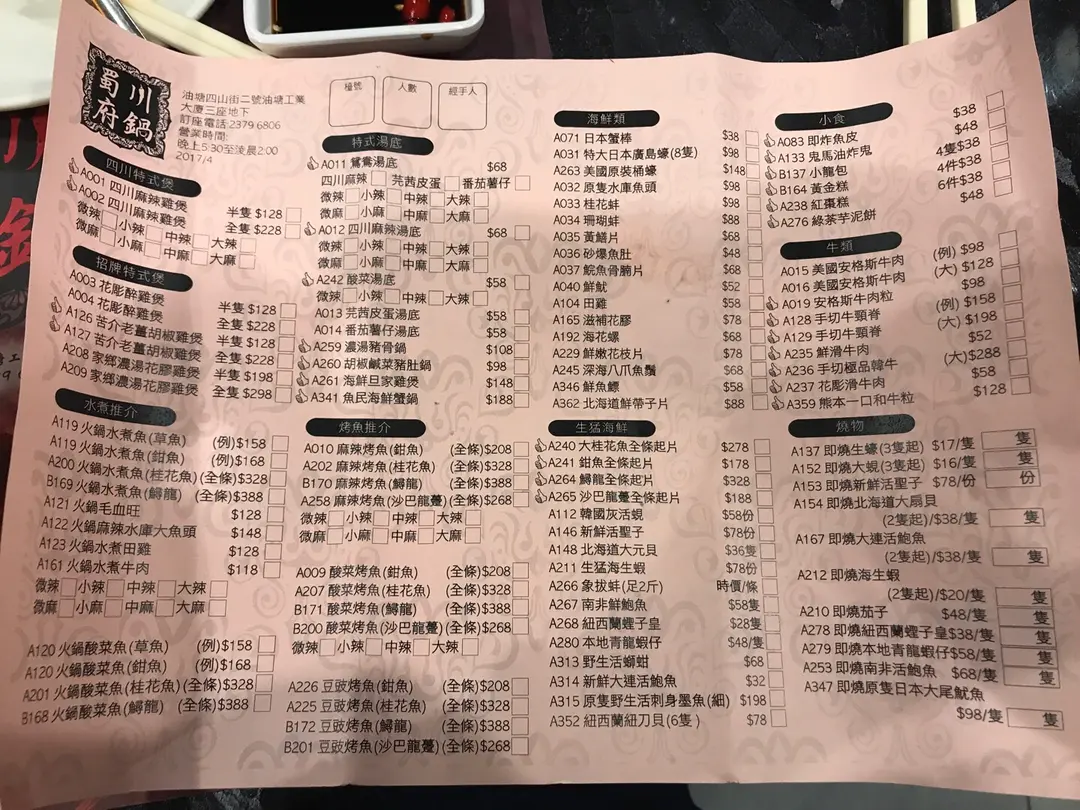 蜀川
府鍋
油塘四山街二號油塘工業
大廈三座地下
訂座電話:2379 6806
營業時間:
晚上5:30至淩晨2:00
2017/4
檯號
人數
經手人
四川特式煲
A001 四川麻辣雞煲 半隻 $128
A002 四川麻辣雞煲 全隻 $228
微辣 小辣 中辣 大辣
微麻 小麻 中麻 大麻
招牌特式煲
A003 花彫醉雞煲 半隻 $128
A004 花彫醉雞煲 全隻 $228
A126 苦介老薑胡椒雞煲 半隻 $128
A127 苦介老薑胡椒雞煲 全隻 $228
A208 家鄉濃湯花膠雞煲 半隻 $198
A209 家鄉濃湯花膠雞煲 全隻 $298
水煮推介
A119 火鍋水煮魚(草魚) (例)$158
A119 火鍋水煮魚(鉗魚) (例)$168
A200 火鍋水煮魚(桂花魚) (全條)$328
B169 火鍋水煮魚(鱘龍) (全條)$388
A121 火鍋毛血旺 $128
A122 火鍋麻辣水庫大魚頭 $148
A123 火鍋水煮田雞 $128
A161 火鍋水煮牛肉 $118
微辣 小辣 中辣 大辣
微麻 小麻 中麻 大麻
A120 火鍋酸菜魚(草魚) (例)$158
A120 火鍋酸菜魚(鉗魚) (例)$168
A201 火鍋酸菜魚(桂花魚) (全條)$328
B168 火鍋酸菜魚(鱘龍) (全條)$388
特式湯底
A011 鴛鴦湯底 $68
四川麻辣 芫茜皮蛋 番茄薯仔
微辣 小辣 中辣 大辣
微麻 小麻 中麻 大麻
A012 四川麻辣湯底 $68
微辣 小辣 中辣 大辣
微麻 小麻 中麻 大麻
A242 酸菜湯底 $58
微辣 小辣 中辣 大辣
A013 芫茜皮蛋湯底 $58
A014 番茄薯仔湯底 $58
A259 濃湯豬骨鍋 $108
A260 胡椒鹹菜豬肚鍋 $98
A261 海鮮旦家雞煲 $148
A341 魚民海鮮蟹鍋 $188
烤魚推介
A010 麻辣烤魚(鉗魚) (全條)$208
A202 麻辣烤魚(桂花魚) (全條)$328
B170 麻辣烤魚(鱘龍) (全條)$388
A258 麻辣烤魚(沙巴龍躉) (全條)$268
微辣 小辣 中辣 大辣
微麻 小麻 中麻 大麻
A009 酸菜烤魚(鉗魚) (全條)$208
A207 酸菜烤魚(桂花魚) (全條)$328
B171 酸菜烤魚(鱘龍) (全條)$388
B200 酸菜烤魚(沙巴龍躉) (全條)$268
微辣 小辣 中辣 大辣
A226 豆豉烤魚(鉗魚) (全條)$208
A225 豆豉烤魚(桂花魚) (全條)$328
B172 豆豉烤魚(鱘龍) (全條)$388
B201 豆豉烤魚(沙巴龍躉) (全條)$268
海鮮類
A071 日本蟹棒 $38
A031 特大日本廣島蠔(8隻) $98
A263 美國原裝桶蠔 $148
A032 原隻水庫魚頭 $98
A033 桂花蚌 $98
A034 珊瑚蚌 $88
A035 黃鱔片 $68
A036 砂爆魚肚 $48
A037 鯇魚骨腩片 $68
A040 鮮魷 $52
A104 田雞 $58
A165 滋補花膠 $78
A192 海花螺 $68
A229 鮮嫩花枝片 $78
A245 深海八爪魚鬚 $68
A346 鮮魚鰾 $58
A362 北海道鮮帶子片 $88
生猛海鮮
A240 大桂花魚全條起片 $278
A241 鉗魚全條起片 $178
A264 鱘龍全條起片 $328
A265 沙巴龍躉全條起片 $188
A112 韓國灰活蜆 $58份
A146 新鮮活聖子 $78份
A148 北海道大元貝 $36隻
A211 生猛海生蝦 $78份
A266 象拔蚌(足2斤) 時價/條
A267 南非鮮鮑魚 $58隻
A268 紐西蘭蟶子皇 $28隻
A280 本地青龍蝦仔 $48/隻
A313 野生活螄蚶 $68
A314 新鮮大連活鮑魚 $32
A315 原隻野生活刺身墨魚(細) $198
A352 紐西蘭紐刀貝(6隻) $78
小食
A083 即炸魚皮 $38
A133 鬼馬油炸鬼 $48
B137 小龍包 4隻$38
B164 黃金糕 4件$38
A238 紅棗糕 6件$38
A276 綠茶芋泥餅 $48
牛類
A015 美國安格斯牛肉 (例) $98
A016 美國安格斯牛肉 (大) $128
A019 安格斯牛肉粒 $98
A128 手切牛頸脊 (例) $158
A129 手切牛頸脊 (大) $198
A235 鮮滑牛肉 $52
A236 手切極品韓牛 (大)$288
A237 花彫滑牛肉 $58
A359 熊本一口和牛粒 $128
燒物
A137 即燒生蠔(3隻起) $17/隻 隻
A152 即燒大蜆(3隻起) $16/隻 隻
A153 即燒新鮮活聖子 $78/份 份
A154 即燒北海道大扇貝
(2隻起)/$38/隻 隻
A167 即燒大連活鮑魚
(2隻起)/$38/隻 隻
A212 即燒海生蝦
(2隻起)/$20/隻 隻
A210 即燒茄子 $48/隻 隻
A278 即燒紐西蘭蟶子皇$38/隻 隻
A279 即燒本地青龍蝦仔$58/隻 隻
A253 即燒南非活鮑魚 $68/隻 隻
A347 即燒原隻日本大尾魷魚
$98/隻 隻